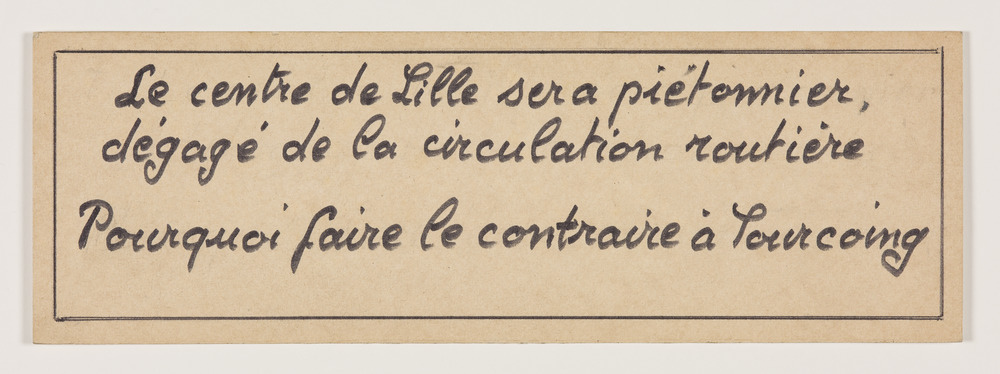 Le centre de Lille sera piétonnier,
dégagé de la circulation routière
Pourquoi faire le contraire à Tourcoing